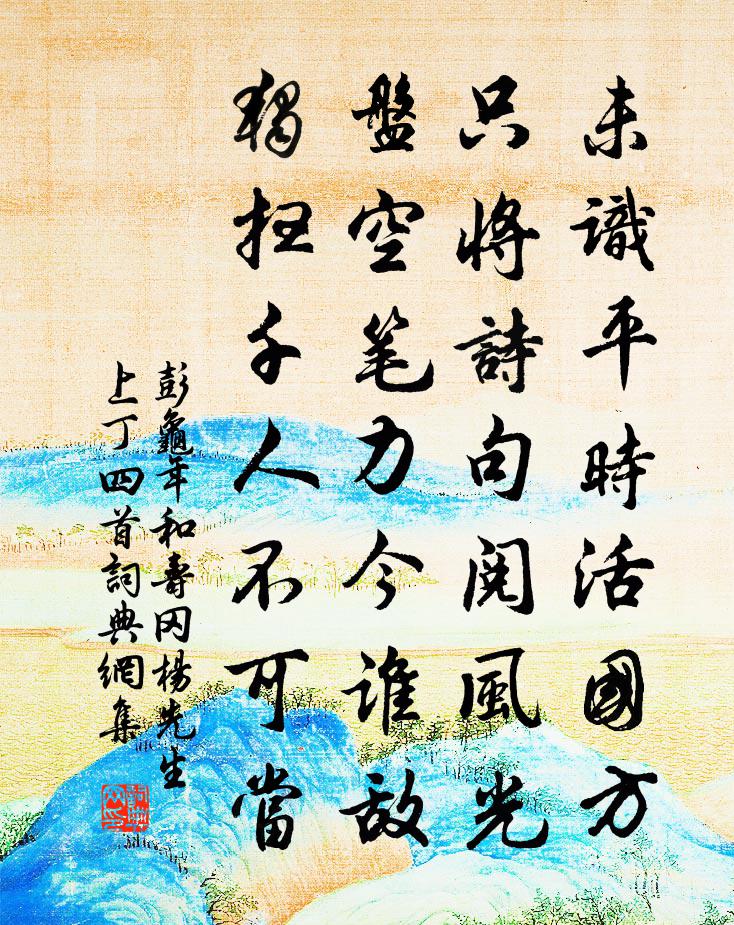 未識平時活國方
只將詩句閱風光
盤空笔力今谁敌
獨扭千人不可當
彭龜年和壽冈楊先生
上丁四首詞典網集